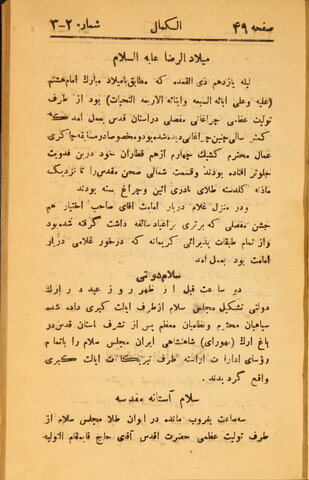 صفحه ۴۹
الکمال
شماره ۲-۳
میلاد الرضا علیه السلام
لیله یازدهم ذی القعده که مطابق بامیلاد مبارك امام هشتم
(علیه وعلی آبائه السبعه وابنائه الاربعه التحیات) بود از طرف
تولیت عظمی چراغانی مفصلی در آستان قدس بعمل آمد که
کمتر سالی چنین چراغانی دیده شده بود و مخصوصا در مسابقه چاکری
عمال محترم کشیك چهارم از هم قطاران خود در بن فدویت
جلوتر افتاده بودند وقسمت شمالی صحن مقدس را تا نزدیك
ماذنه گلدسته طلای نادری آئین وچراغ بسته بودند
ودر منزل غلام دربار امامت آقای صاحب اختیار هم
جشن مفصلی که برتری براعیاد سالفه داشت گرفته شده بود
واز تمام طبقات پذیرائی کریمانه که درخور غلامی دربار
امامت بود بعمل آمد
سلام دولتی
دو ساعت قبل از ظهر روز عید در ارك
دولتی تشکیل مجلس سلام از طرف ایالت کبری داده شده
سپاهیان محترم ونظامیان معظم پس از تشرف آستان قدس در
باغ ارك (بهورای) شاهنشاهی ایران مجلس سلام را باتمام
رؤسای ادارات آراسته طرف تبریکات ایالت کبری
واقع گردیدند.
سلام آستانه مقدسه
سه ساعت بغروب مانده در ایوان طلا مجلس سلام از
طرف تولیت عظمی حضرت اقدس آقای حاج قایم مقام التولیه